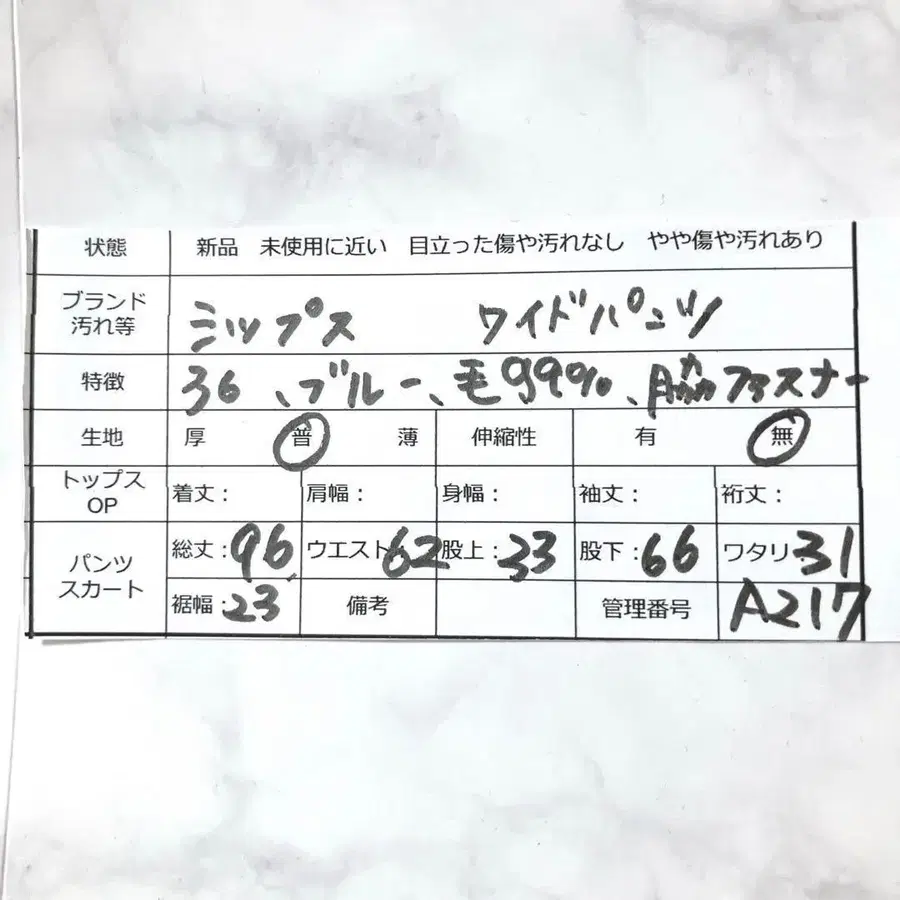 状態 新品 未使用に近い 目立った傷や汚れなし やや傷や汚れあり
ブランド
汚れ等 ミップス ワイドパンツ
特徴 36、ブルー、毛99%、脇ファスナー
生地 厚 普 薄 伸縮性 有 無
トップス
OP 着丈: 肩幅: 身幅: 袖丈: 裄丈:
パンツ
スカート 総丈:96 ウエスト62 股上:33 股下:66 ワタリ31
裾幅:23 備考 管理番号 A217